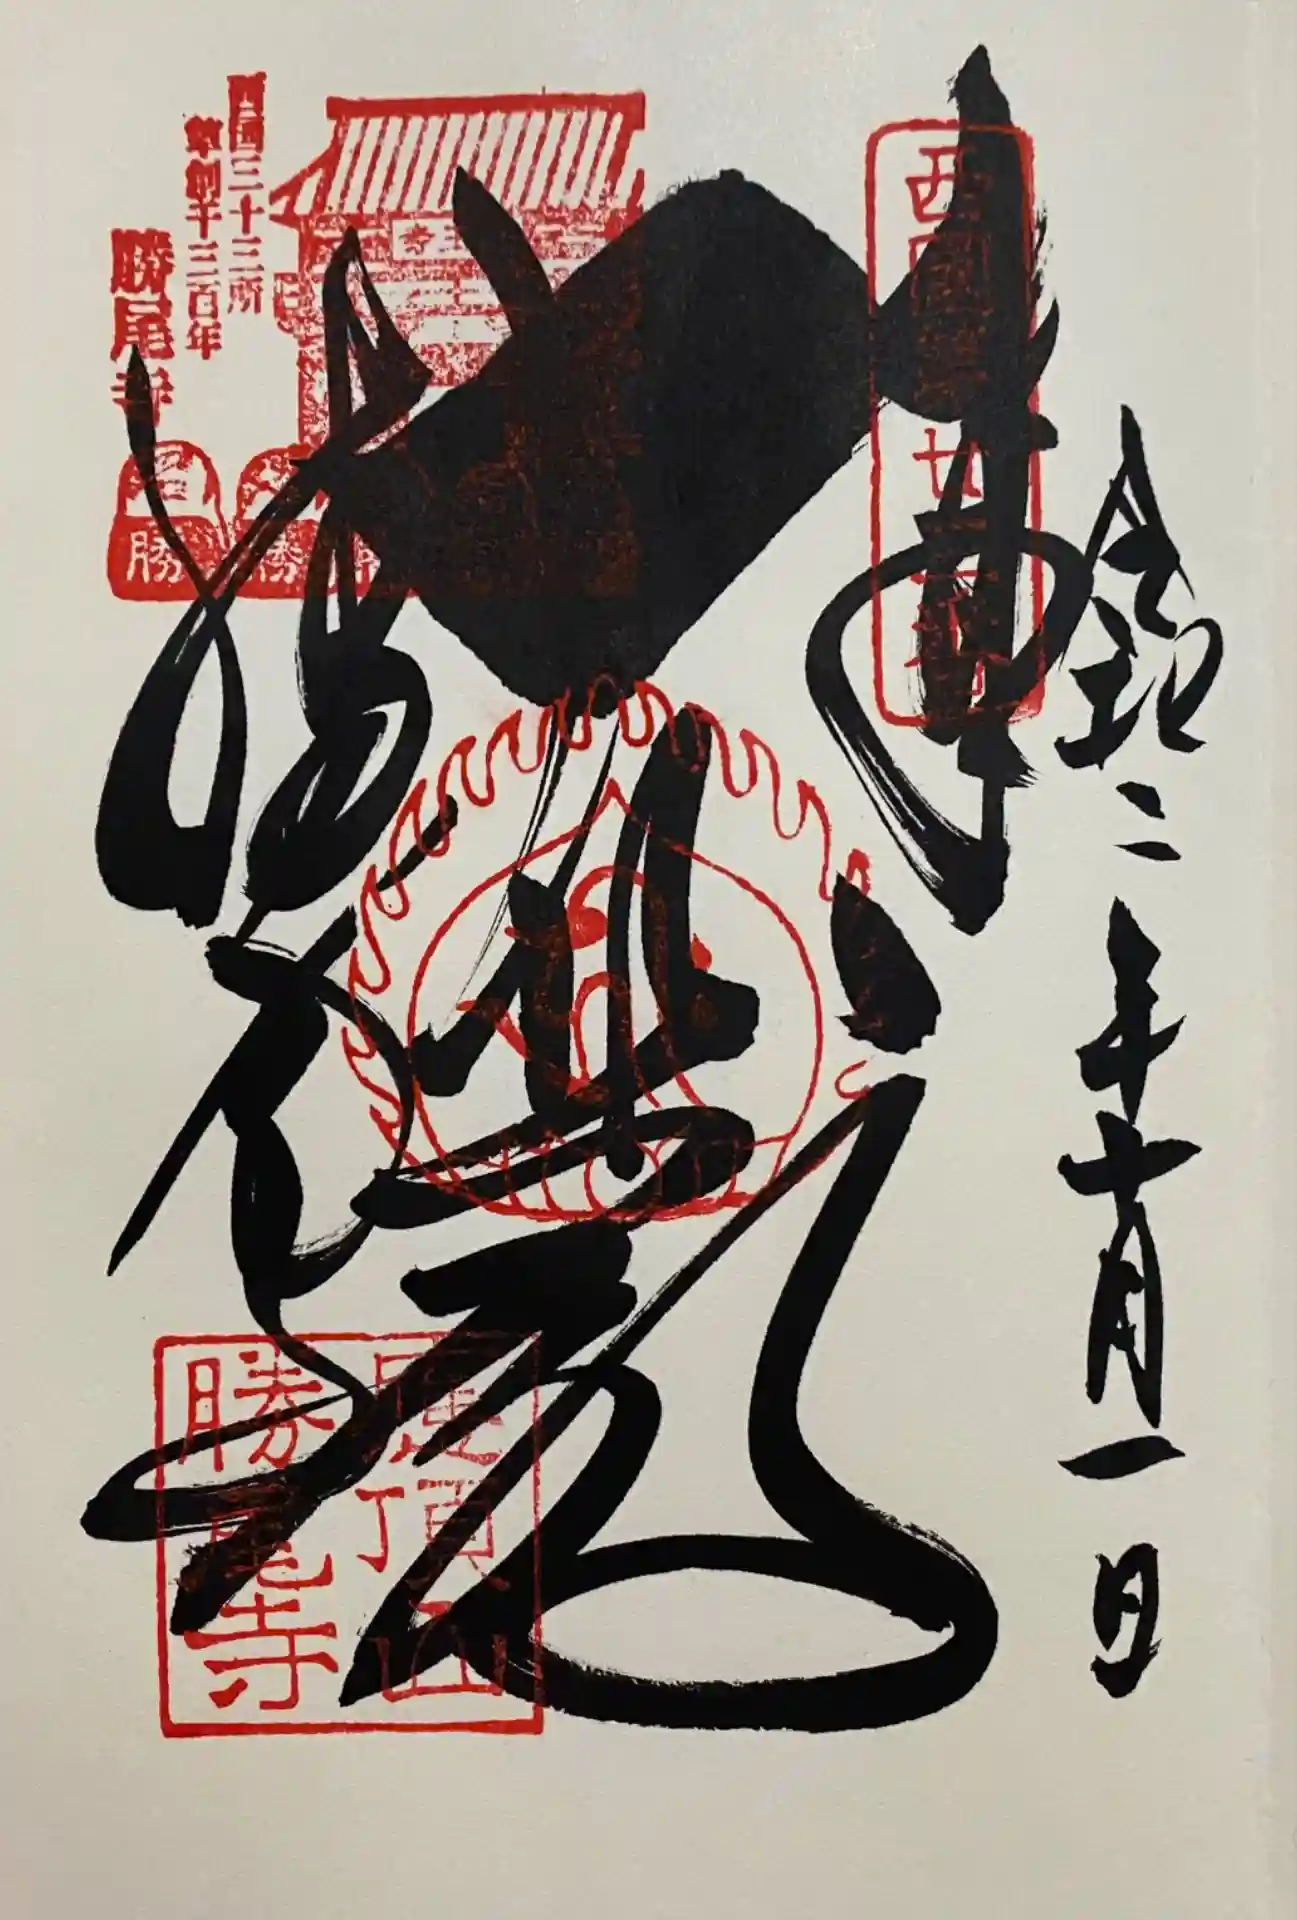 令和二年十月一日
奉
西國第廿三番
大悲殿
勝尾寺
西国三十三所
草創千三百年
勝尾寺
勝
勝
應頂山
勝尾寺